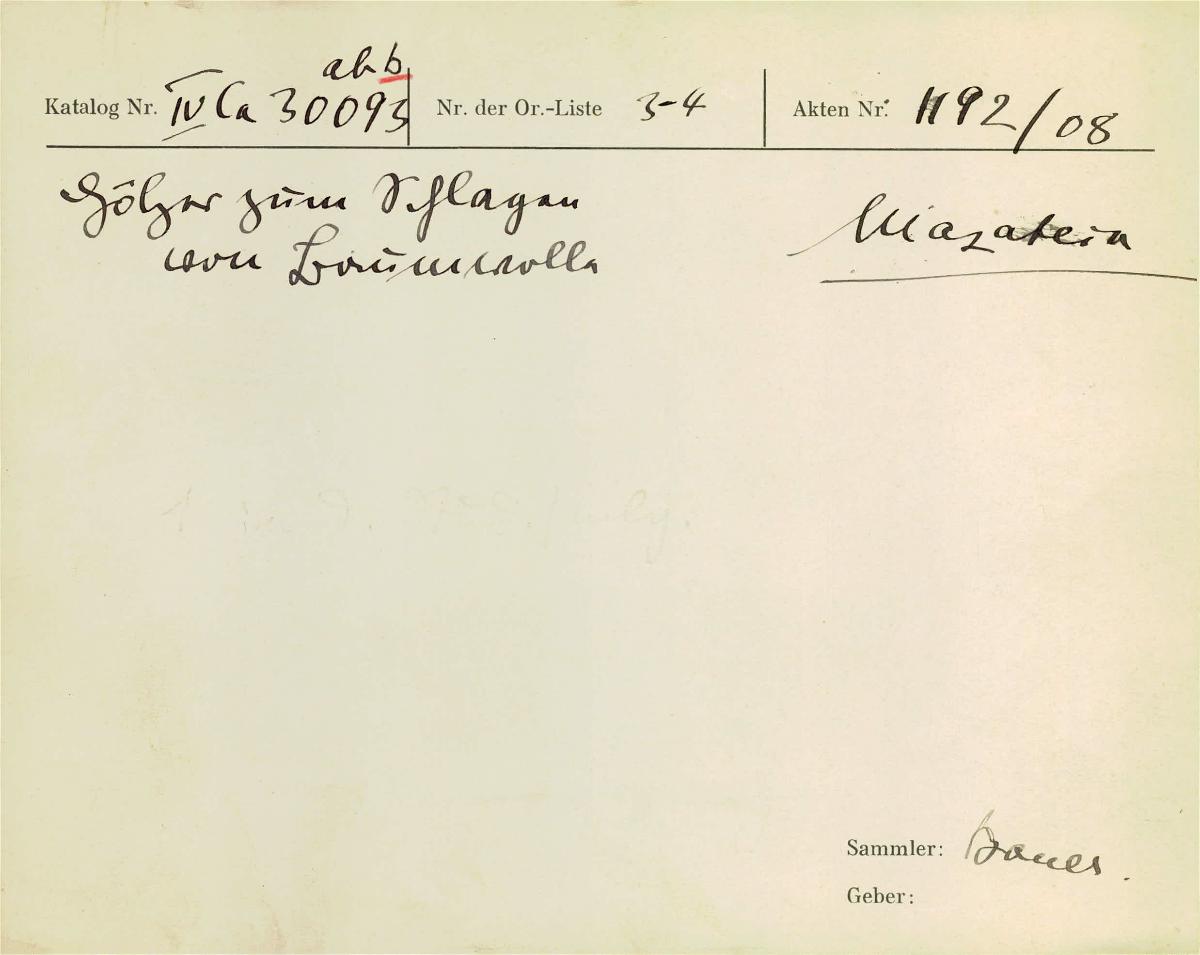 Katalog Nr. IV Ca 30093 ab b
Nr. der Or.-Liste 3-4
Akten Nr. 1192/08
Hölzer zum Schlagen
von Baumwolle
Mazateca
Sammler: Bauer.
Geber: